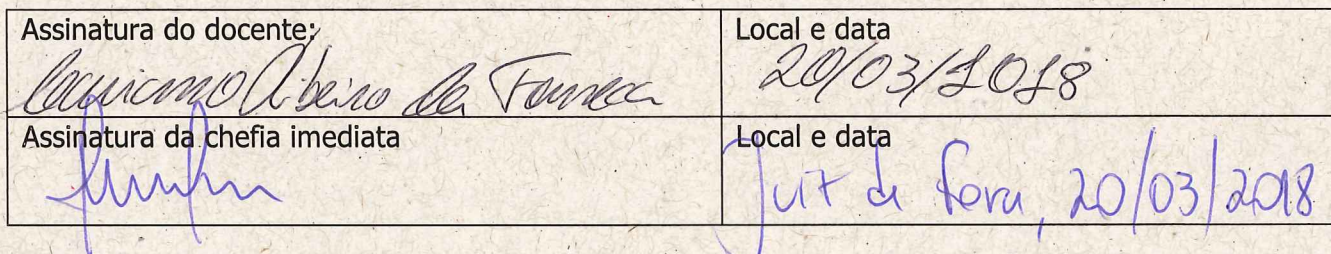 Assinatura do docente:
Ribeiro da Fonseca
Local e data
20/03/2018
Assinatura da chefia imediata
Local e data
Juiz de Fora, 20/03/2018